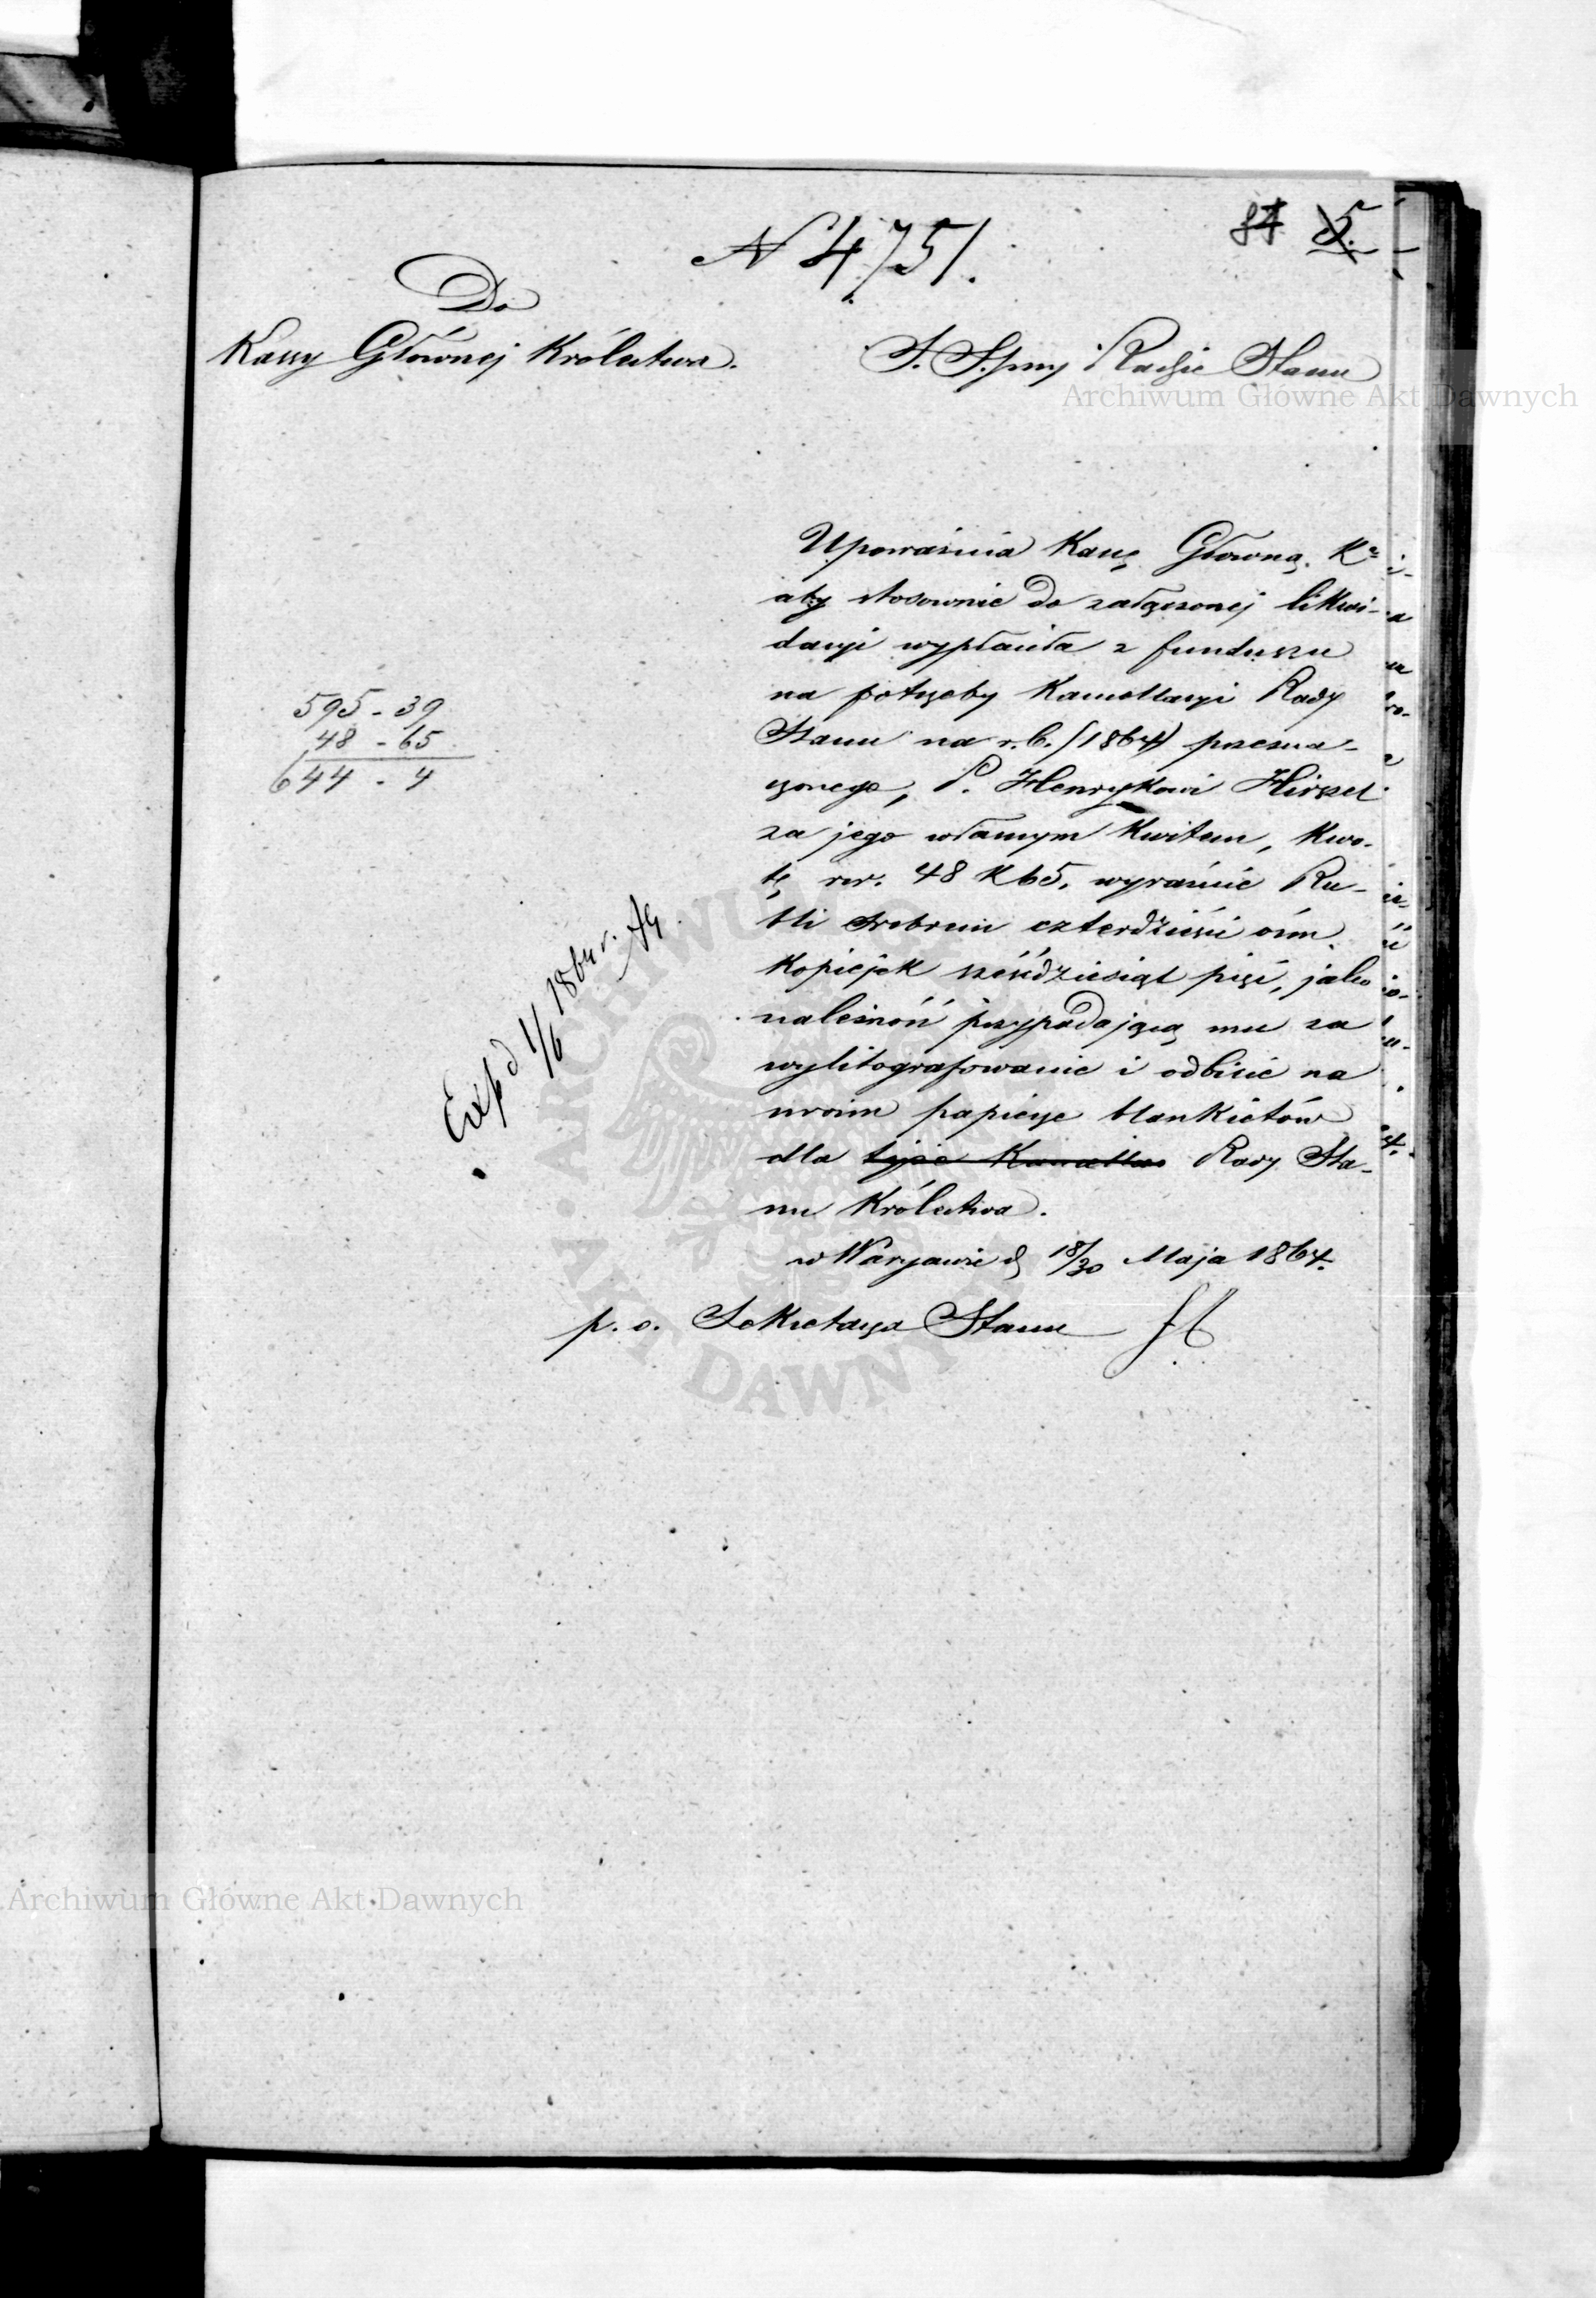 N 4751.
84 5.
Do
Kassy Głównej Królestwa.
S. S. przy Radzie Stanu
Upoważnia Kassę Główną Kr
aby stosownie do załączonej likwi-
dacyi wypłaciła z funduszu
na potrzeby Kancellaryi Rady
Stanu na r. b. (1864) przezna-
czonego, P. Henrykowi Hirszel
za jego własnym kwitem, kwo-
tę rsr. 48 k 65, wyraźnie Ru-
bli srebrem czterdzieści ośm
kopiejek sześćdziesiąt pięć, jako
należność przypadającą mu za
wylitografowanie i odbicie na
swoim papierze blankietów
dla tejże Kancellar Rady Sta-
nu Królestwa.
w Warszawie d 18/30 Maja 1864.
p. o. Sekretarza Stanu
595 - 39
48 - 65
644 - 4
Exp d 1/6 1864 r.
Archiwum Główne Akt Dawnych
Archiwum Główne Akt Dawnych
ARCHIWUM
AKT DAWNY